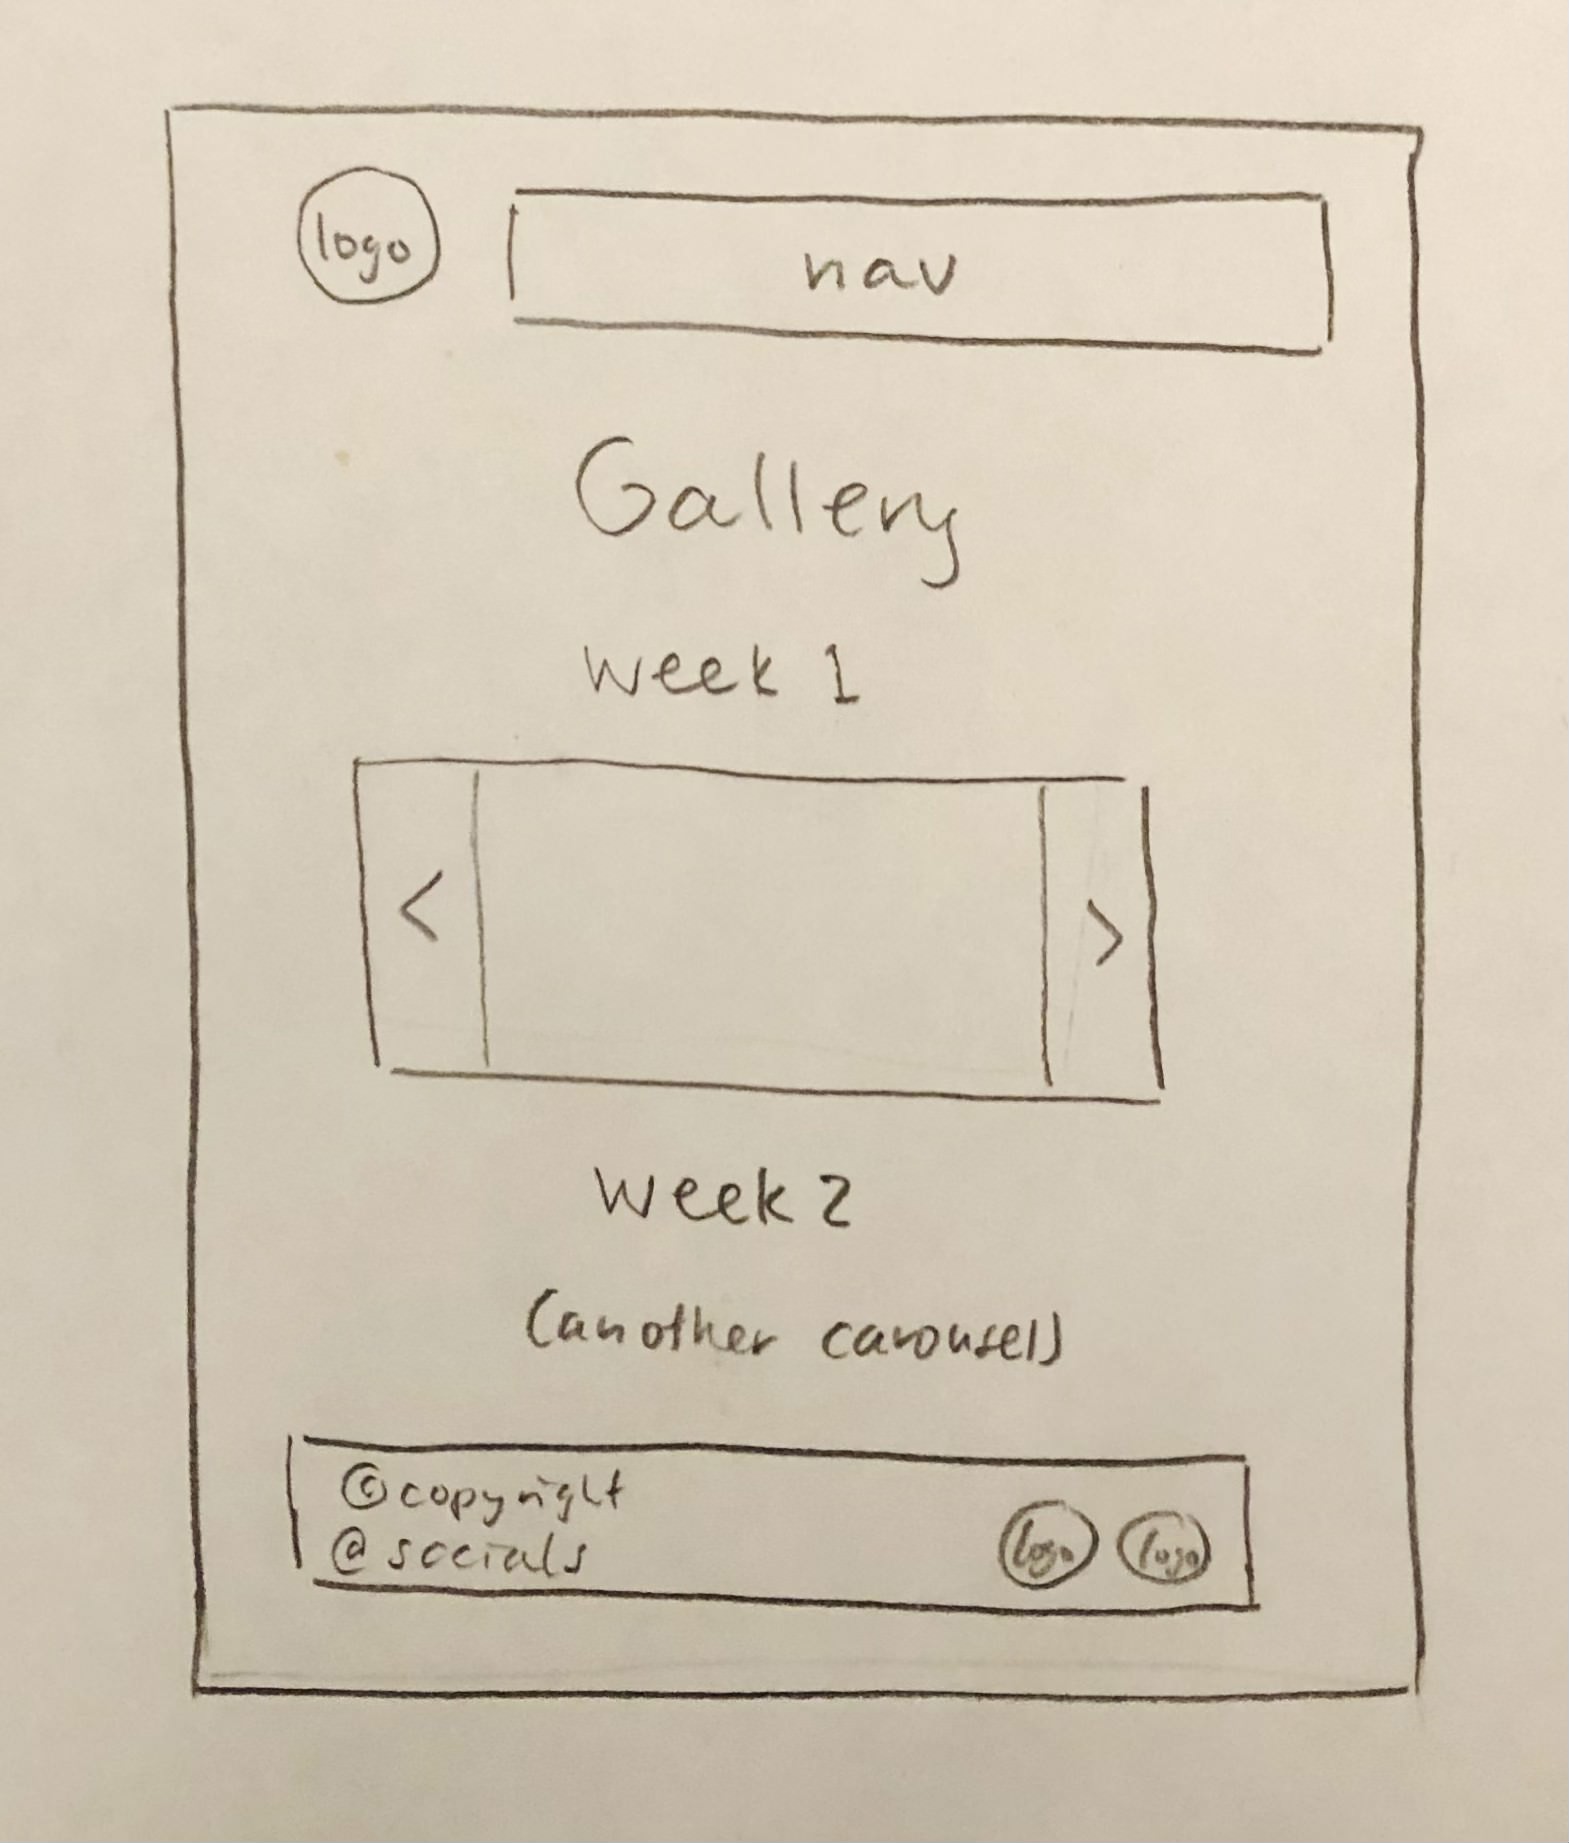 logo
nav
Gallery
week 1
< >
week 2
(another carousel)
©copyright
@socials
logo logo